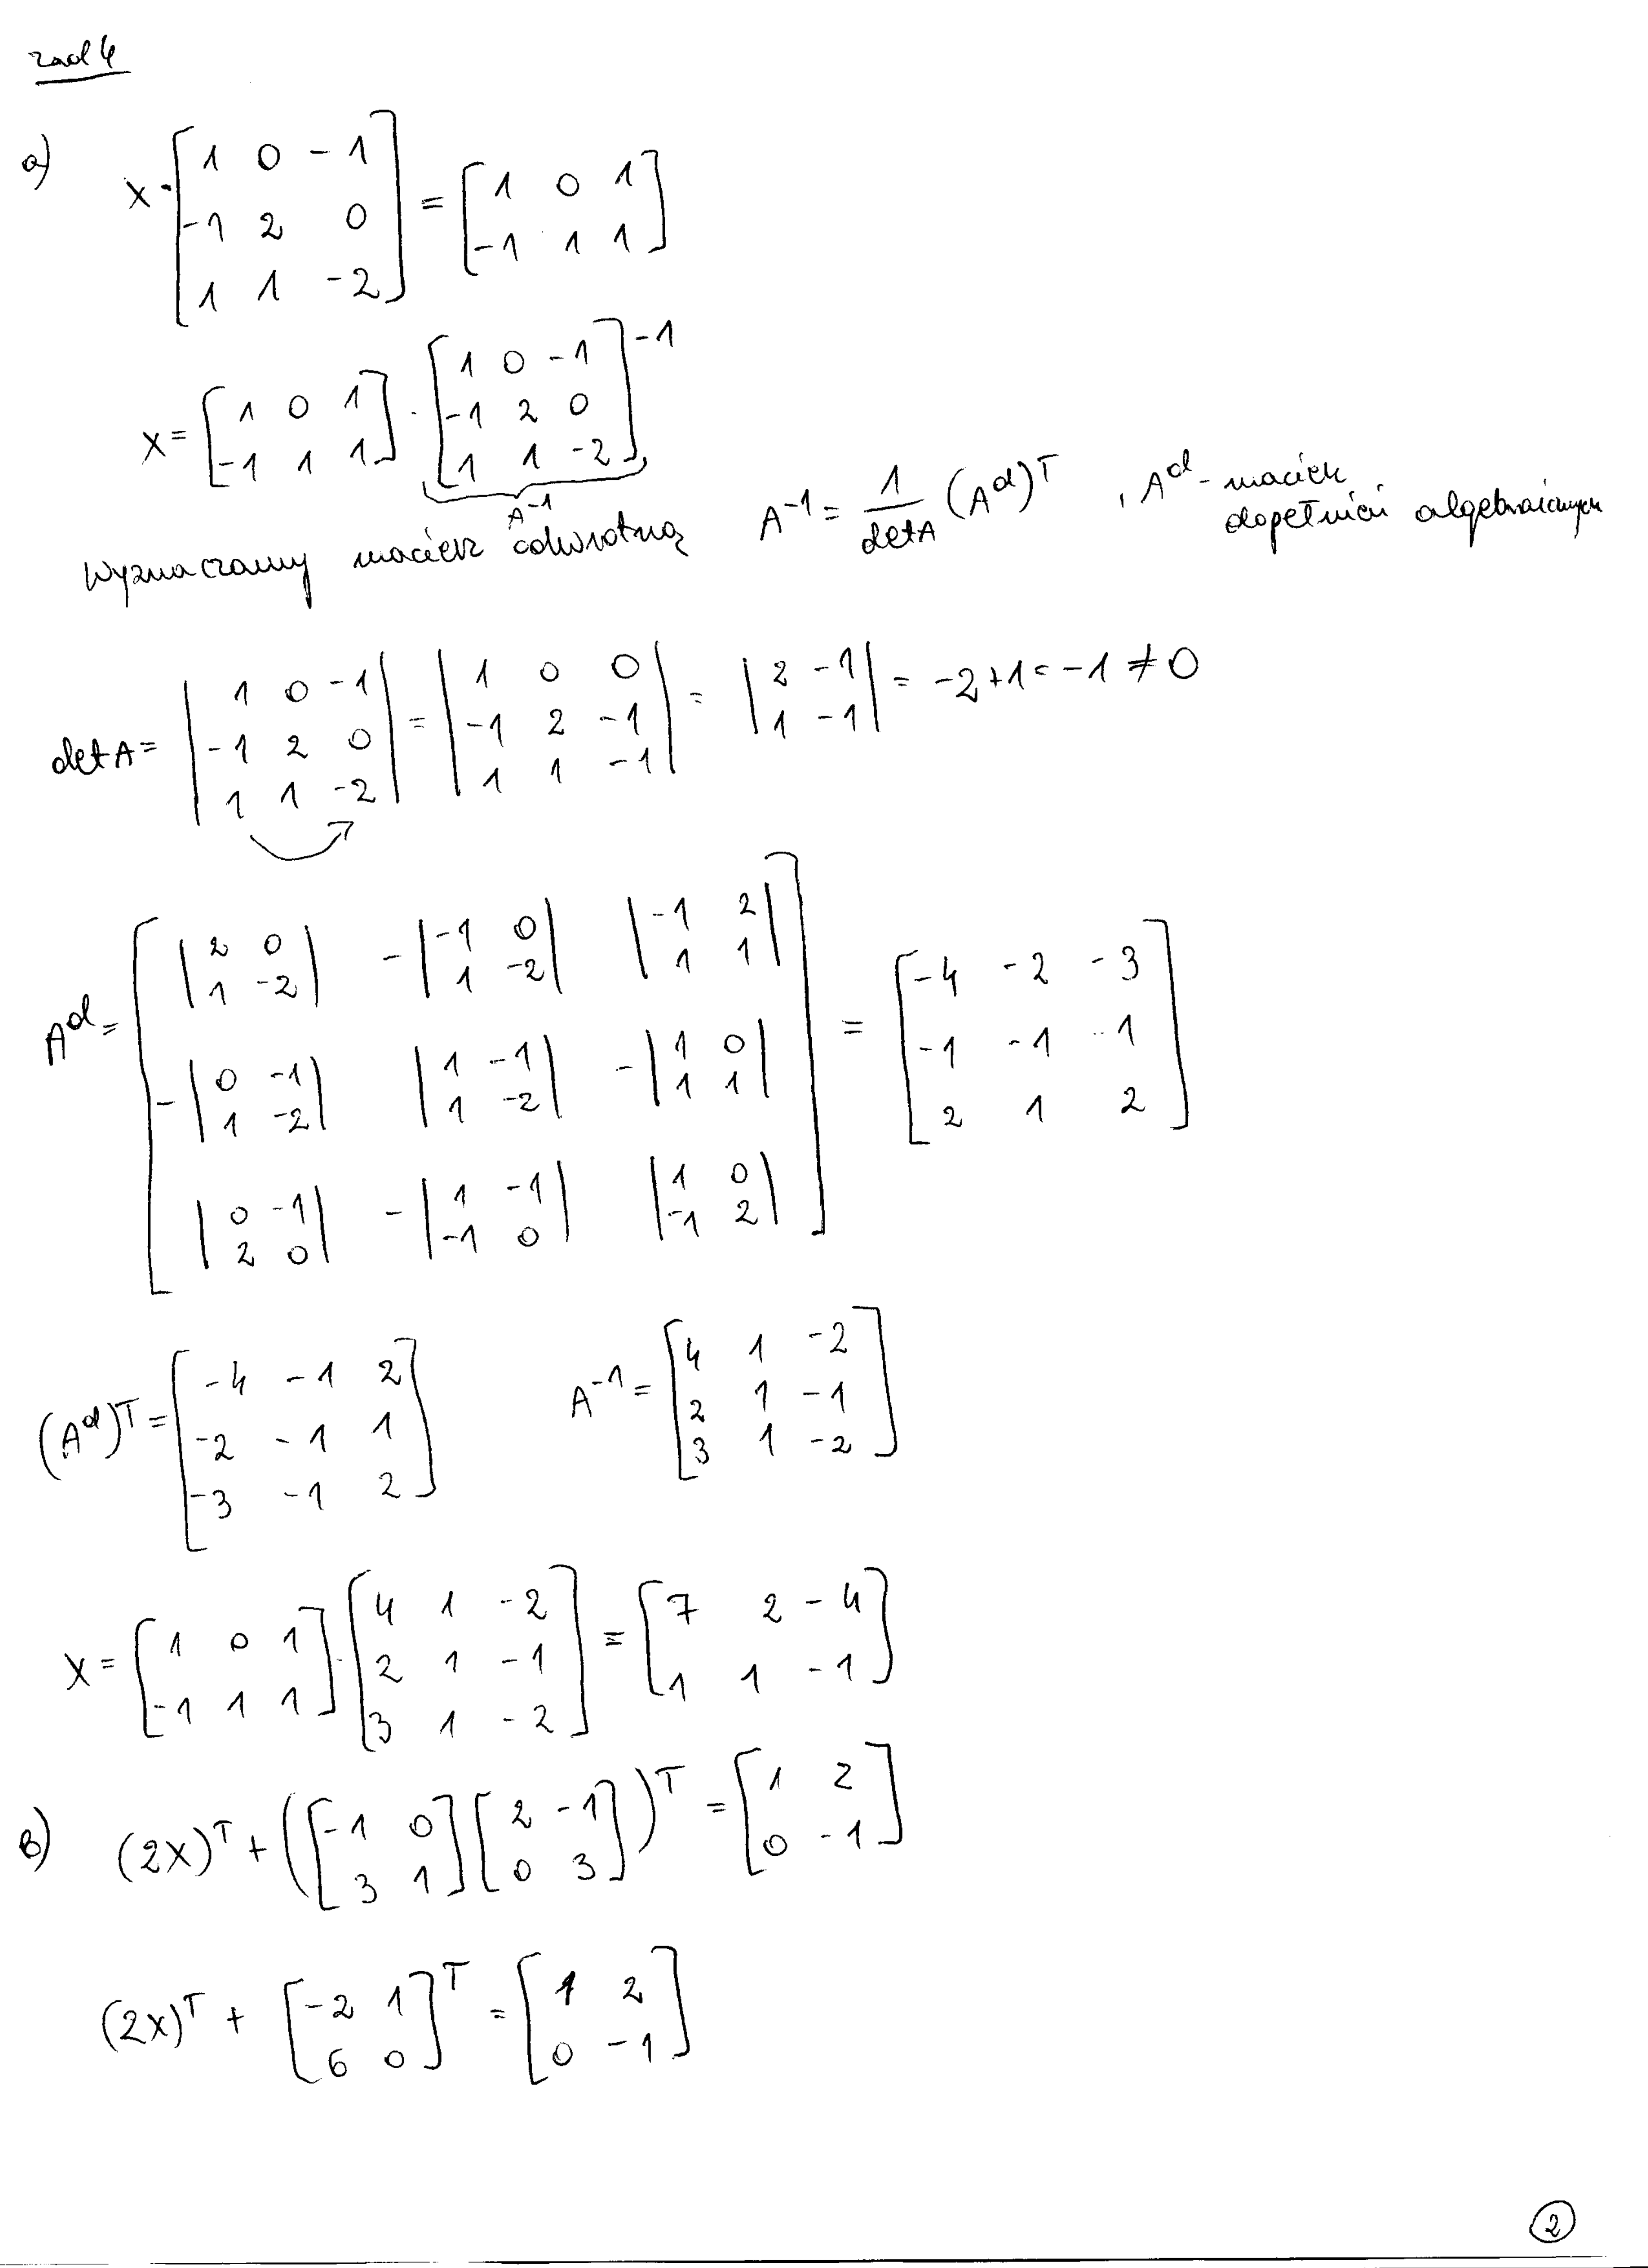 zad 4
a) X · [1 0 -1; -1 2 0; 1 1 -2] = [1 0 1; -1 1 1]
X = [1 0 1; -1 1 1] · [1 0 -1; -1 2 0; 1 1 -2]^-1
A^-1
Wyznaczamy macierz odwrotną A^-1 = 1/detA (A^d)^T , A^d - macierz
dopełnień algebraicznych
det A = |1 0 -1; -1 2 0; 1 1 -2| = |1 0 0; -1 2 -1; 1 1 -1| = |2 -1; 1 -1| = -2+1 = -1 ≠ 0
A^d = [|2 0; 1 -2| -|-1 0; 1 -2| |-1 2; 1 1|; -|0 -1; 1 -2| |1 -1; 1 -2| -|1 0; 1 1|; |0 -1; 2 0| -|1 -1; -1 0| |1 0; -1 2|] = [-4 -2 -3; -1 -1 -1; 2 1 2]
(A^d)^T = [-4 -1 2; -2 -1 1; -3 -1 2] A^-1 = [4 1 -2; 2 1 -1; 3 1 -2]
X = [1 0 1; -1 1 1] · [4 1 -2; 2 1 -1; 3 1 -2] = [7 2 -4; 1 1 -1]
b) (2X)^T + ([-1 0; 3 1] [2 -1; 0 3])^T = [1 2; 0 -1]
(2X)^T + [-2 1; 6 0]^T = [1 2; 0 -1]
2